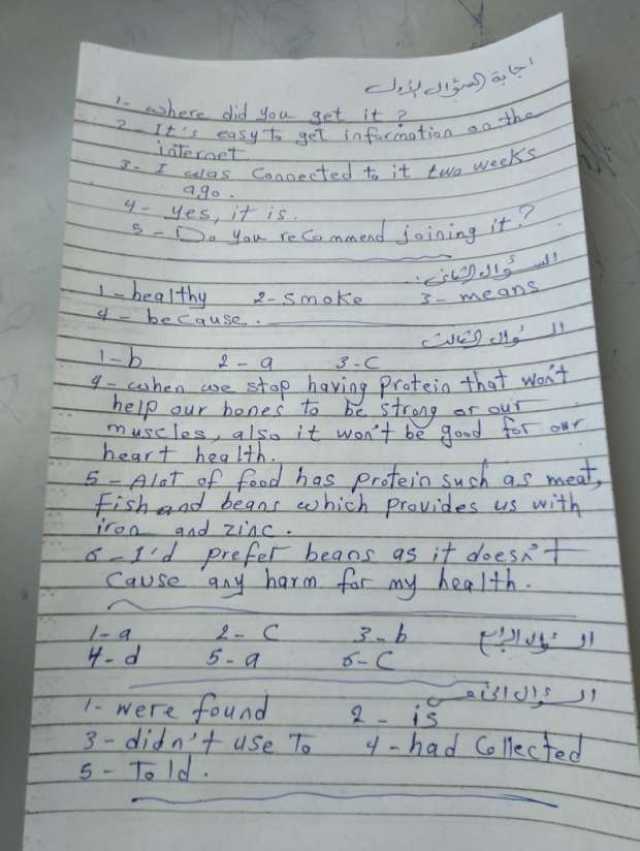 اجابة السؤال الاول
1- where did you get it ?
2- It's easy to get information on the
internet
3- I was Connected to it two weeks
ago.
4- yes, it is.
5- Do you recommend joining it?
السؤال الثانى:
1- healthy 2- smoke 3- means
4- because.
السؤال الثالث
1-b 2-a 3-C
4- when we stop having Protein that won't
help our bones to be strong or our
muscles, also it won't be good for our
heart health.
5- Alot of food has protein such as meat,
Fish and beans which provides us with
iron and zinc.
6- I'd prefer beans as it doesn't
Cause any harm for my health.
السؤال الرابع
1-a 2-C 3-b
4-d 5-a 6-C
السؤال الخامس
1- were found 2- is
3- didn't use To 4- had Collected
5- Told.